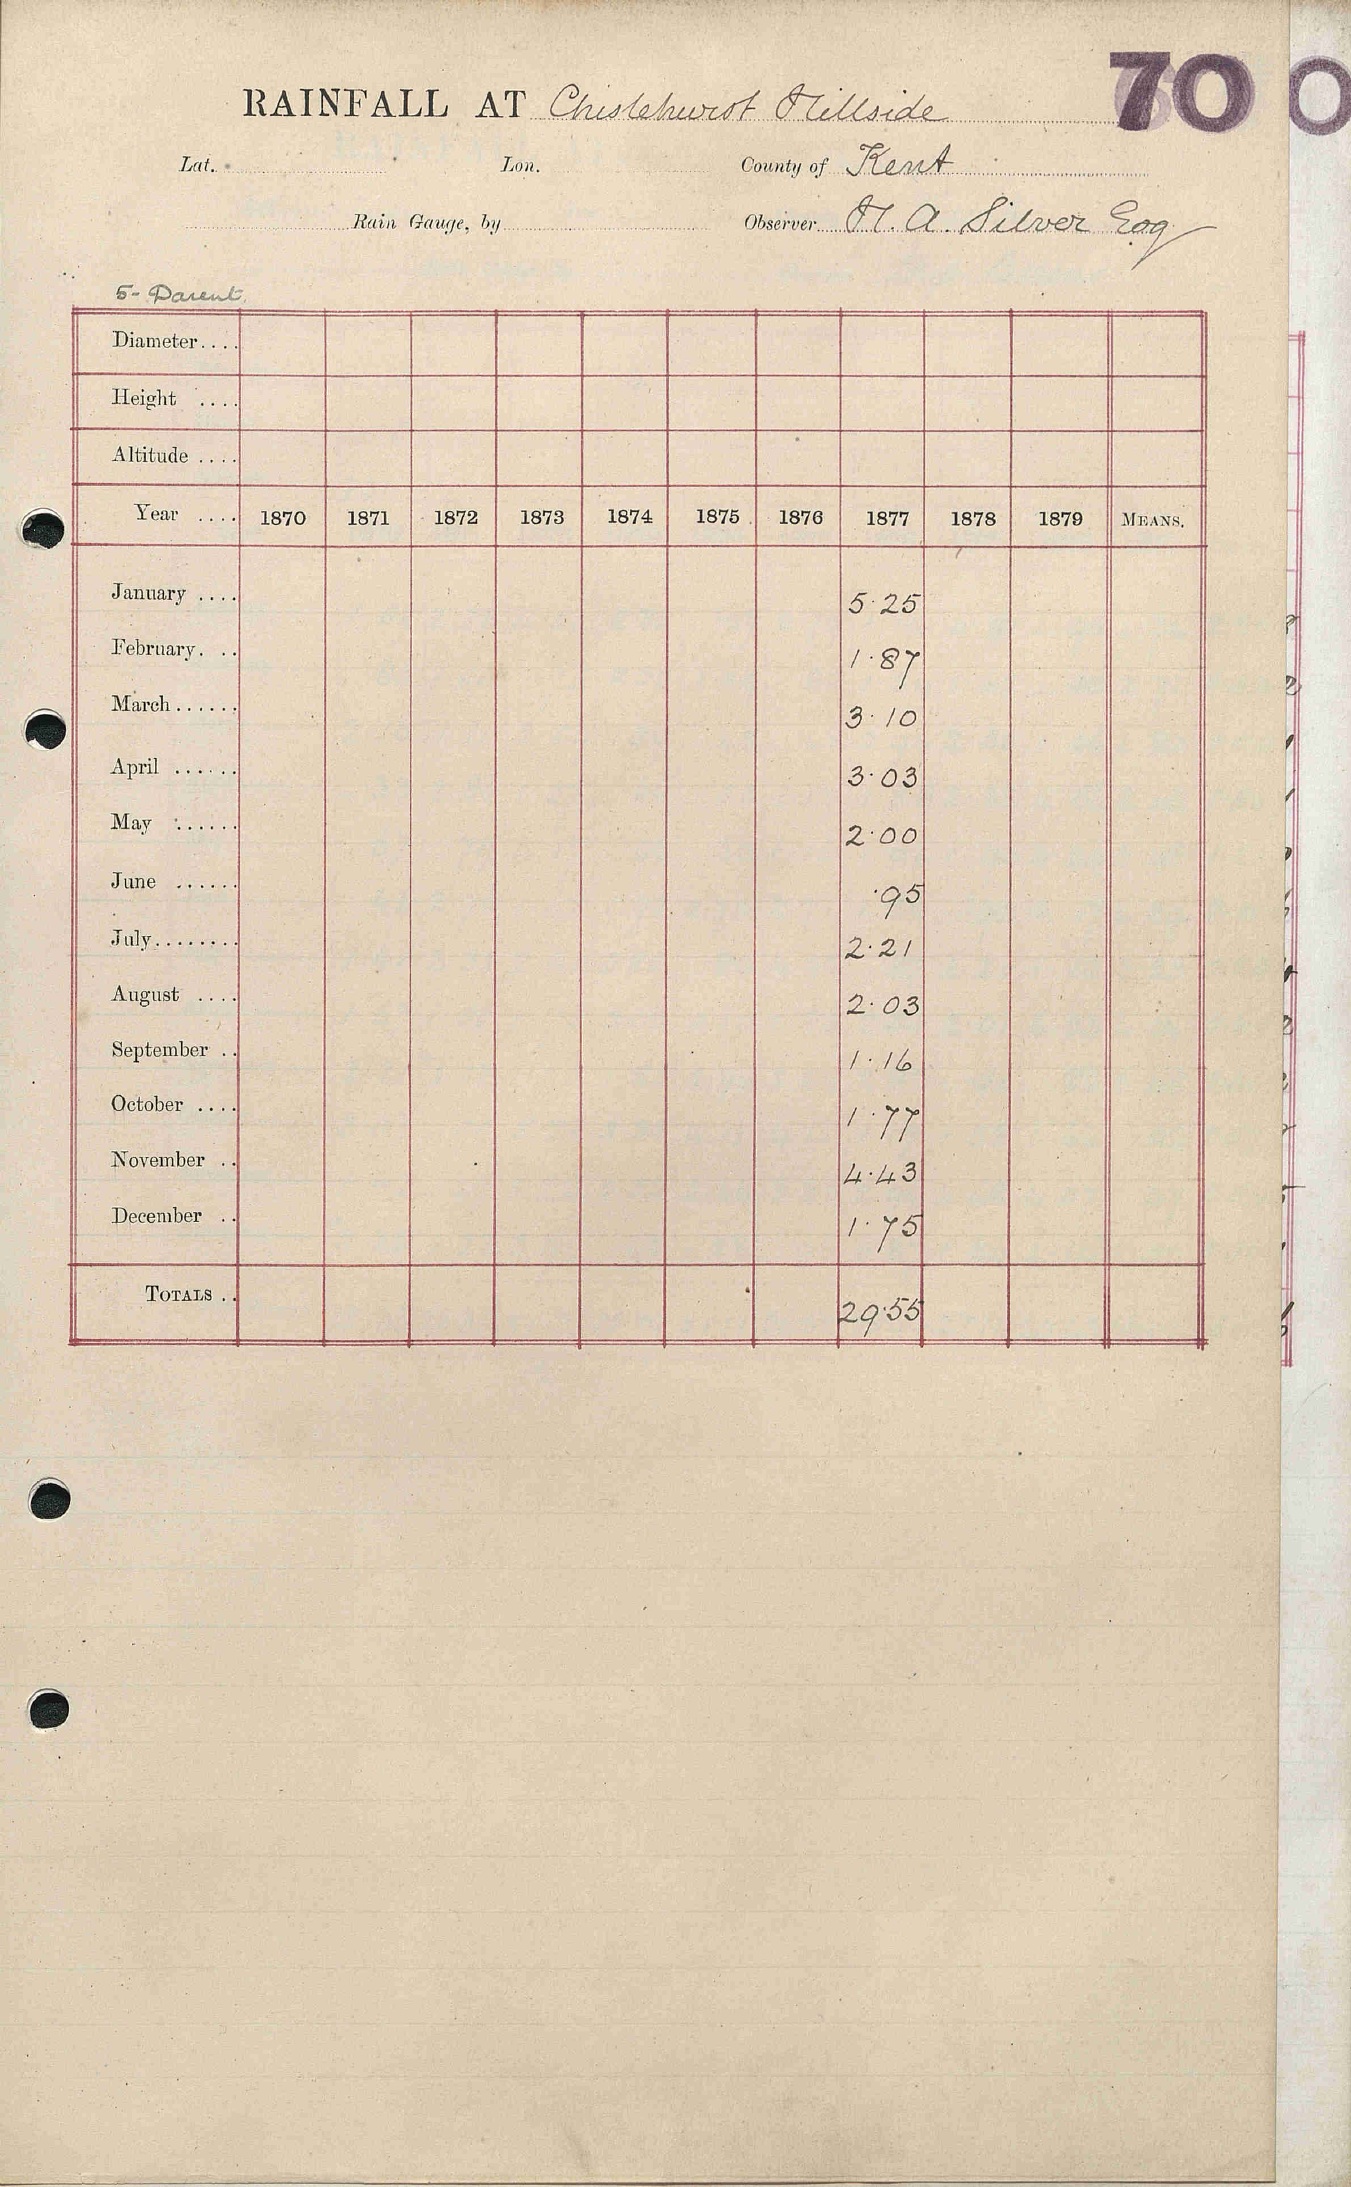 70
RAINFALL AT Chislehurst Hillside
Lat. Lon. County of Kent
Rain Gauge, by Observer H. A. Silver Esq
5- Parent
Diameter....
Height ....
Altitude ....
Year .... 1870 1871 1872 1873 1874 1875 1876 1877 1878 1879 MEANS.
January .... 5.25
February. .. 1.87
March...... 3.10
April ...... 3.03
May ...... 2.00
June ...... .95
July........ 2.21
August .... 2.03
September .. 1.16
October .... 1.77
November .. 4.43
December .. 1.75
TOTALS .. 29.55